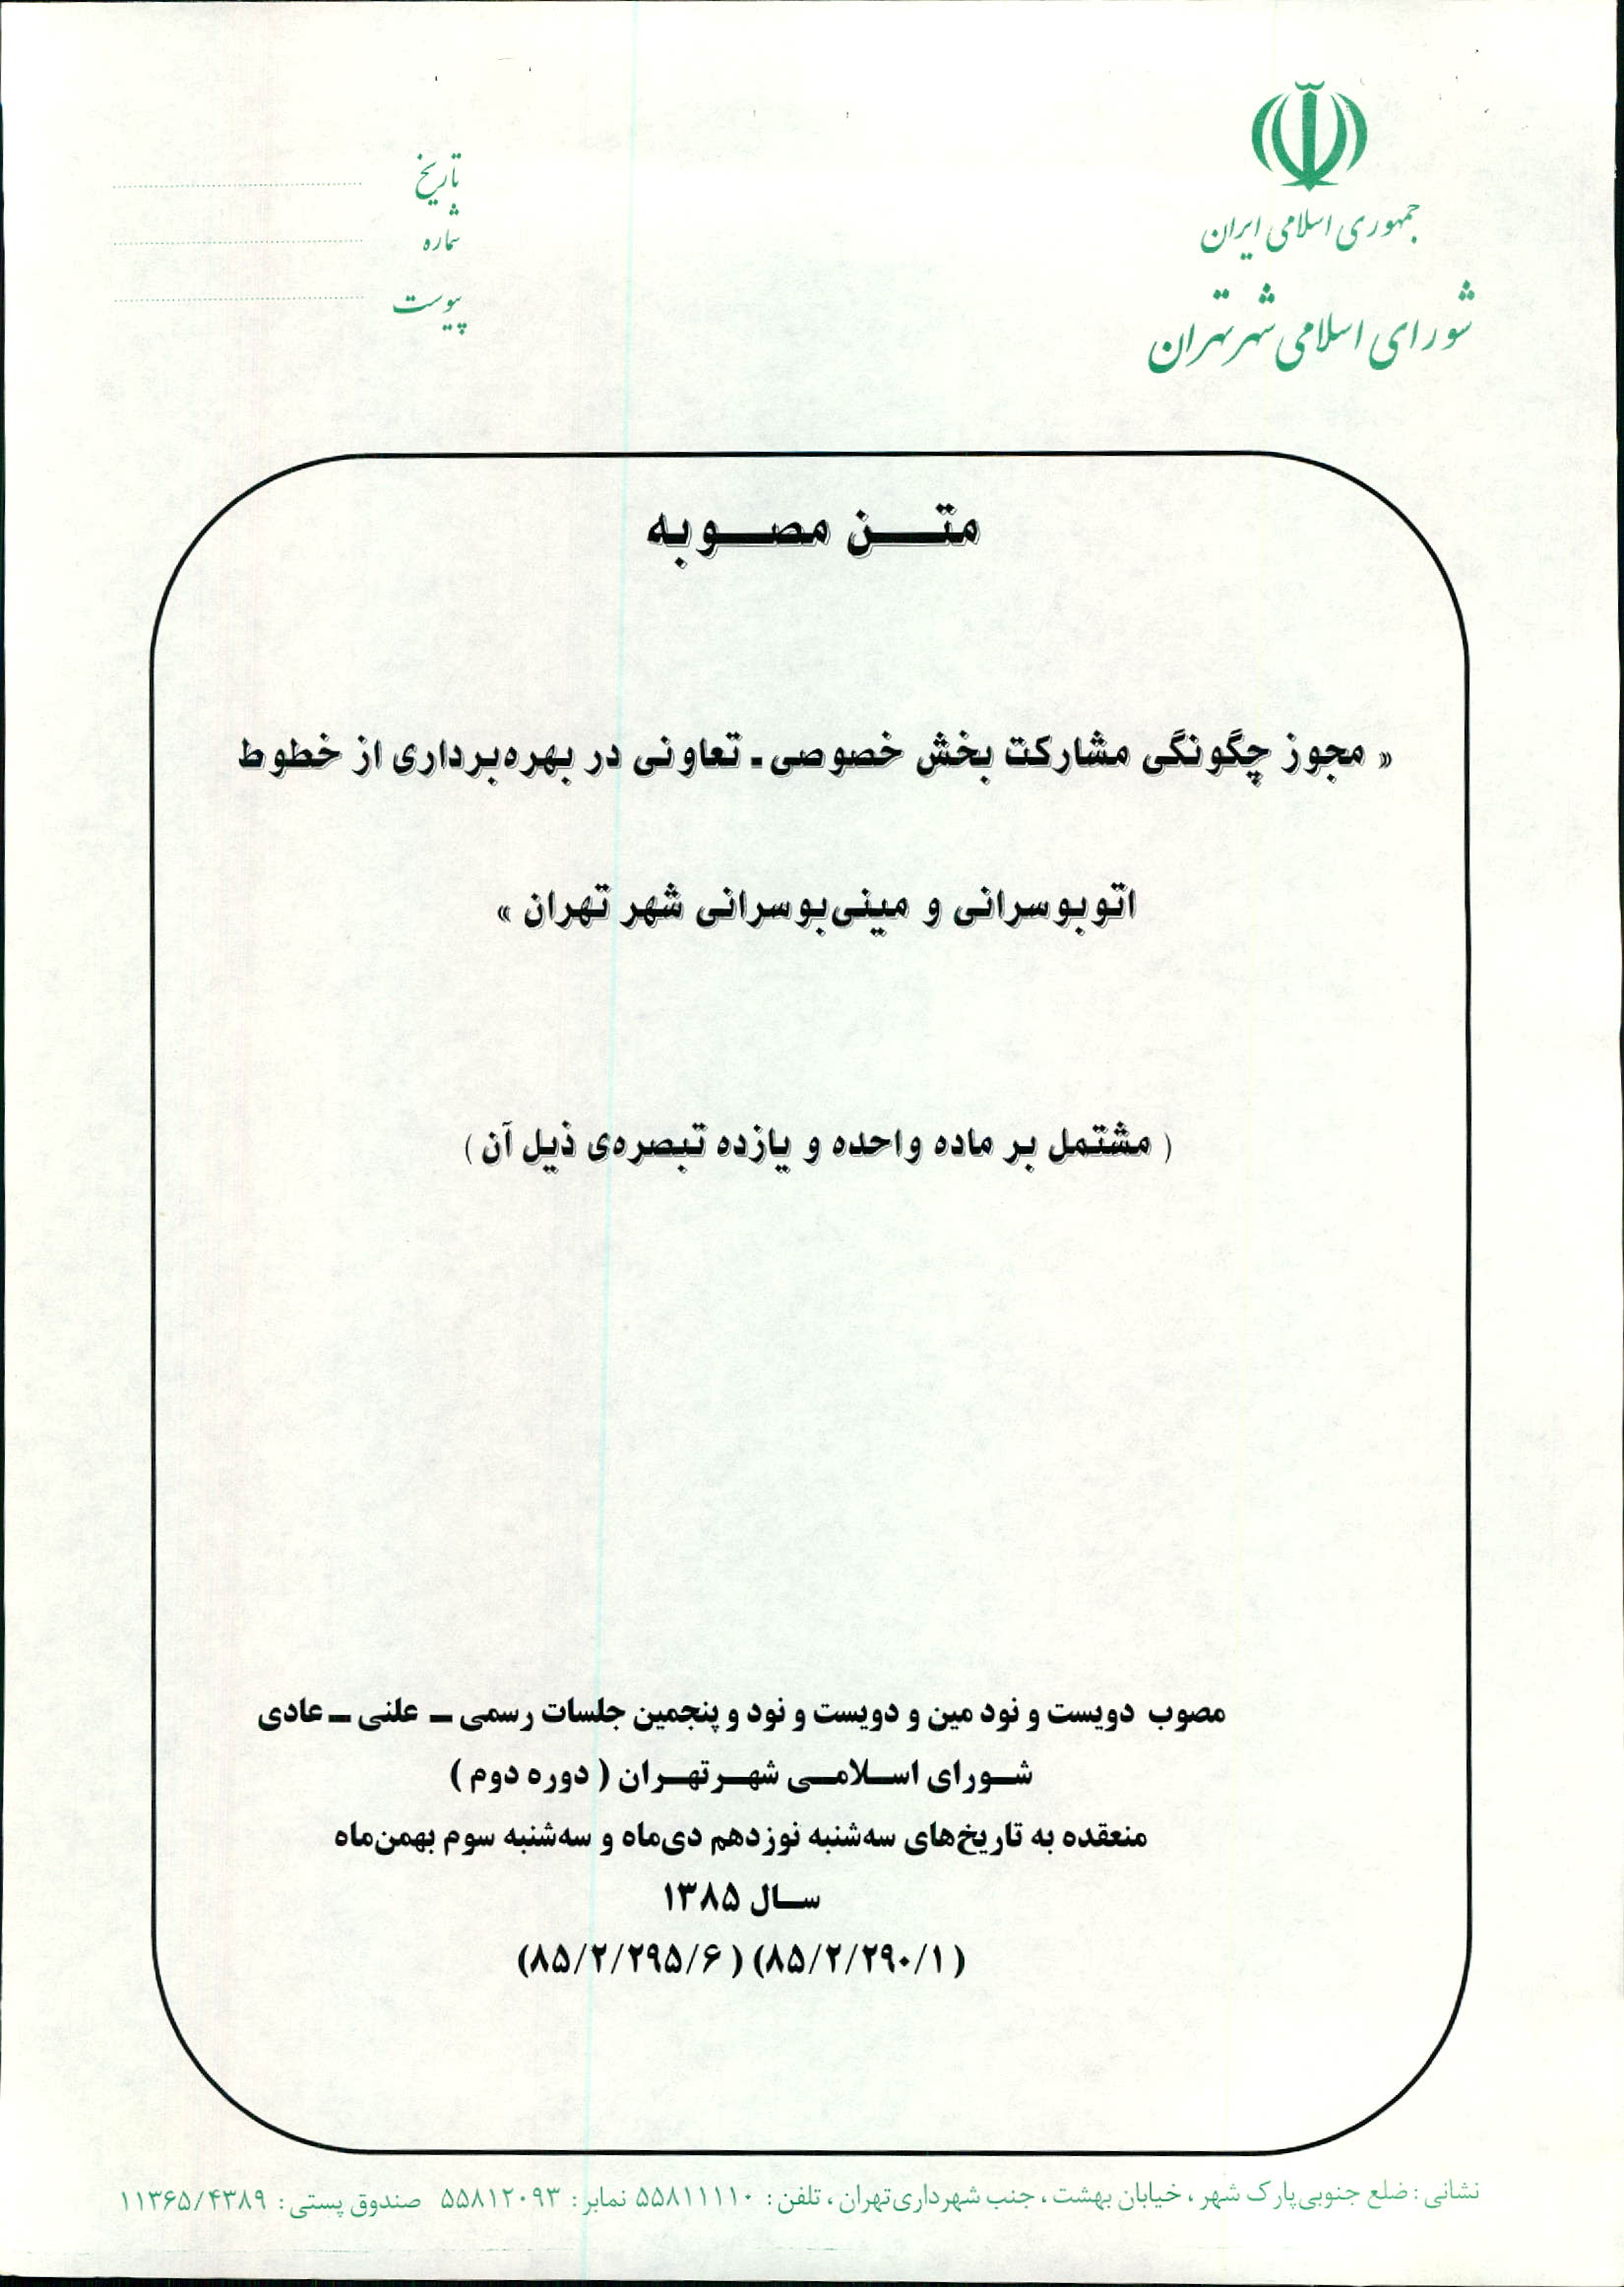 جمهوری اسلامی ایران
شورای اسلامی شهر تهران
تاریخ
شماره
پیوست
متن مصوبه
« مجوز چگونگی مشارکت بخش خصوصی ـ تعاونی در بهره‌برداری از خطوط
اتوبوسرانی و مینی‌بوسرانی شهر تهران »
( مشتمل بر ماده واحده و یازده تبصره‌ی ذیل آن )
مصوب دویست و نود مین و دویست و نود و پنجمین جلسات رسمی ــ علنی ــ عادی
شورای اسلامی شهر تهران ( دوره دوم )
منعقده به تاریخ‌های سه‌شنبه نوزدهم دی‌ماه و سه‌شنبه سوم بهمن‌ماه
سال ۱۳۸۵
(۸۵/۲/۲۹۰/۱ ) (۸۵/۲/۲۹۵/۶ )
نشانی : ضلع جنوبی پارک شهر ، خیابان بهشت ، جنب شهرداری تهران ، تلفن : ۵۵۸۱۱۱۱۰ نمابر : ۵۵۸۱۲۰۹۳ صندوق پستی : ۱۱۳۶۵/۴۳۸۹